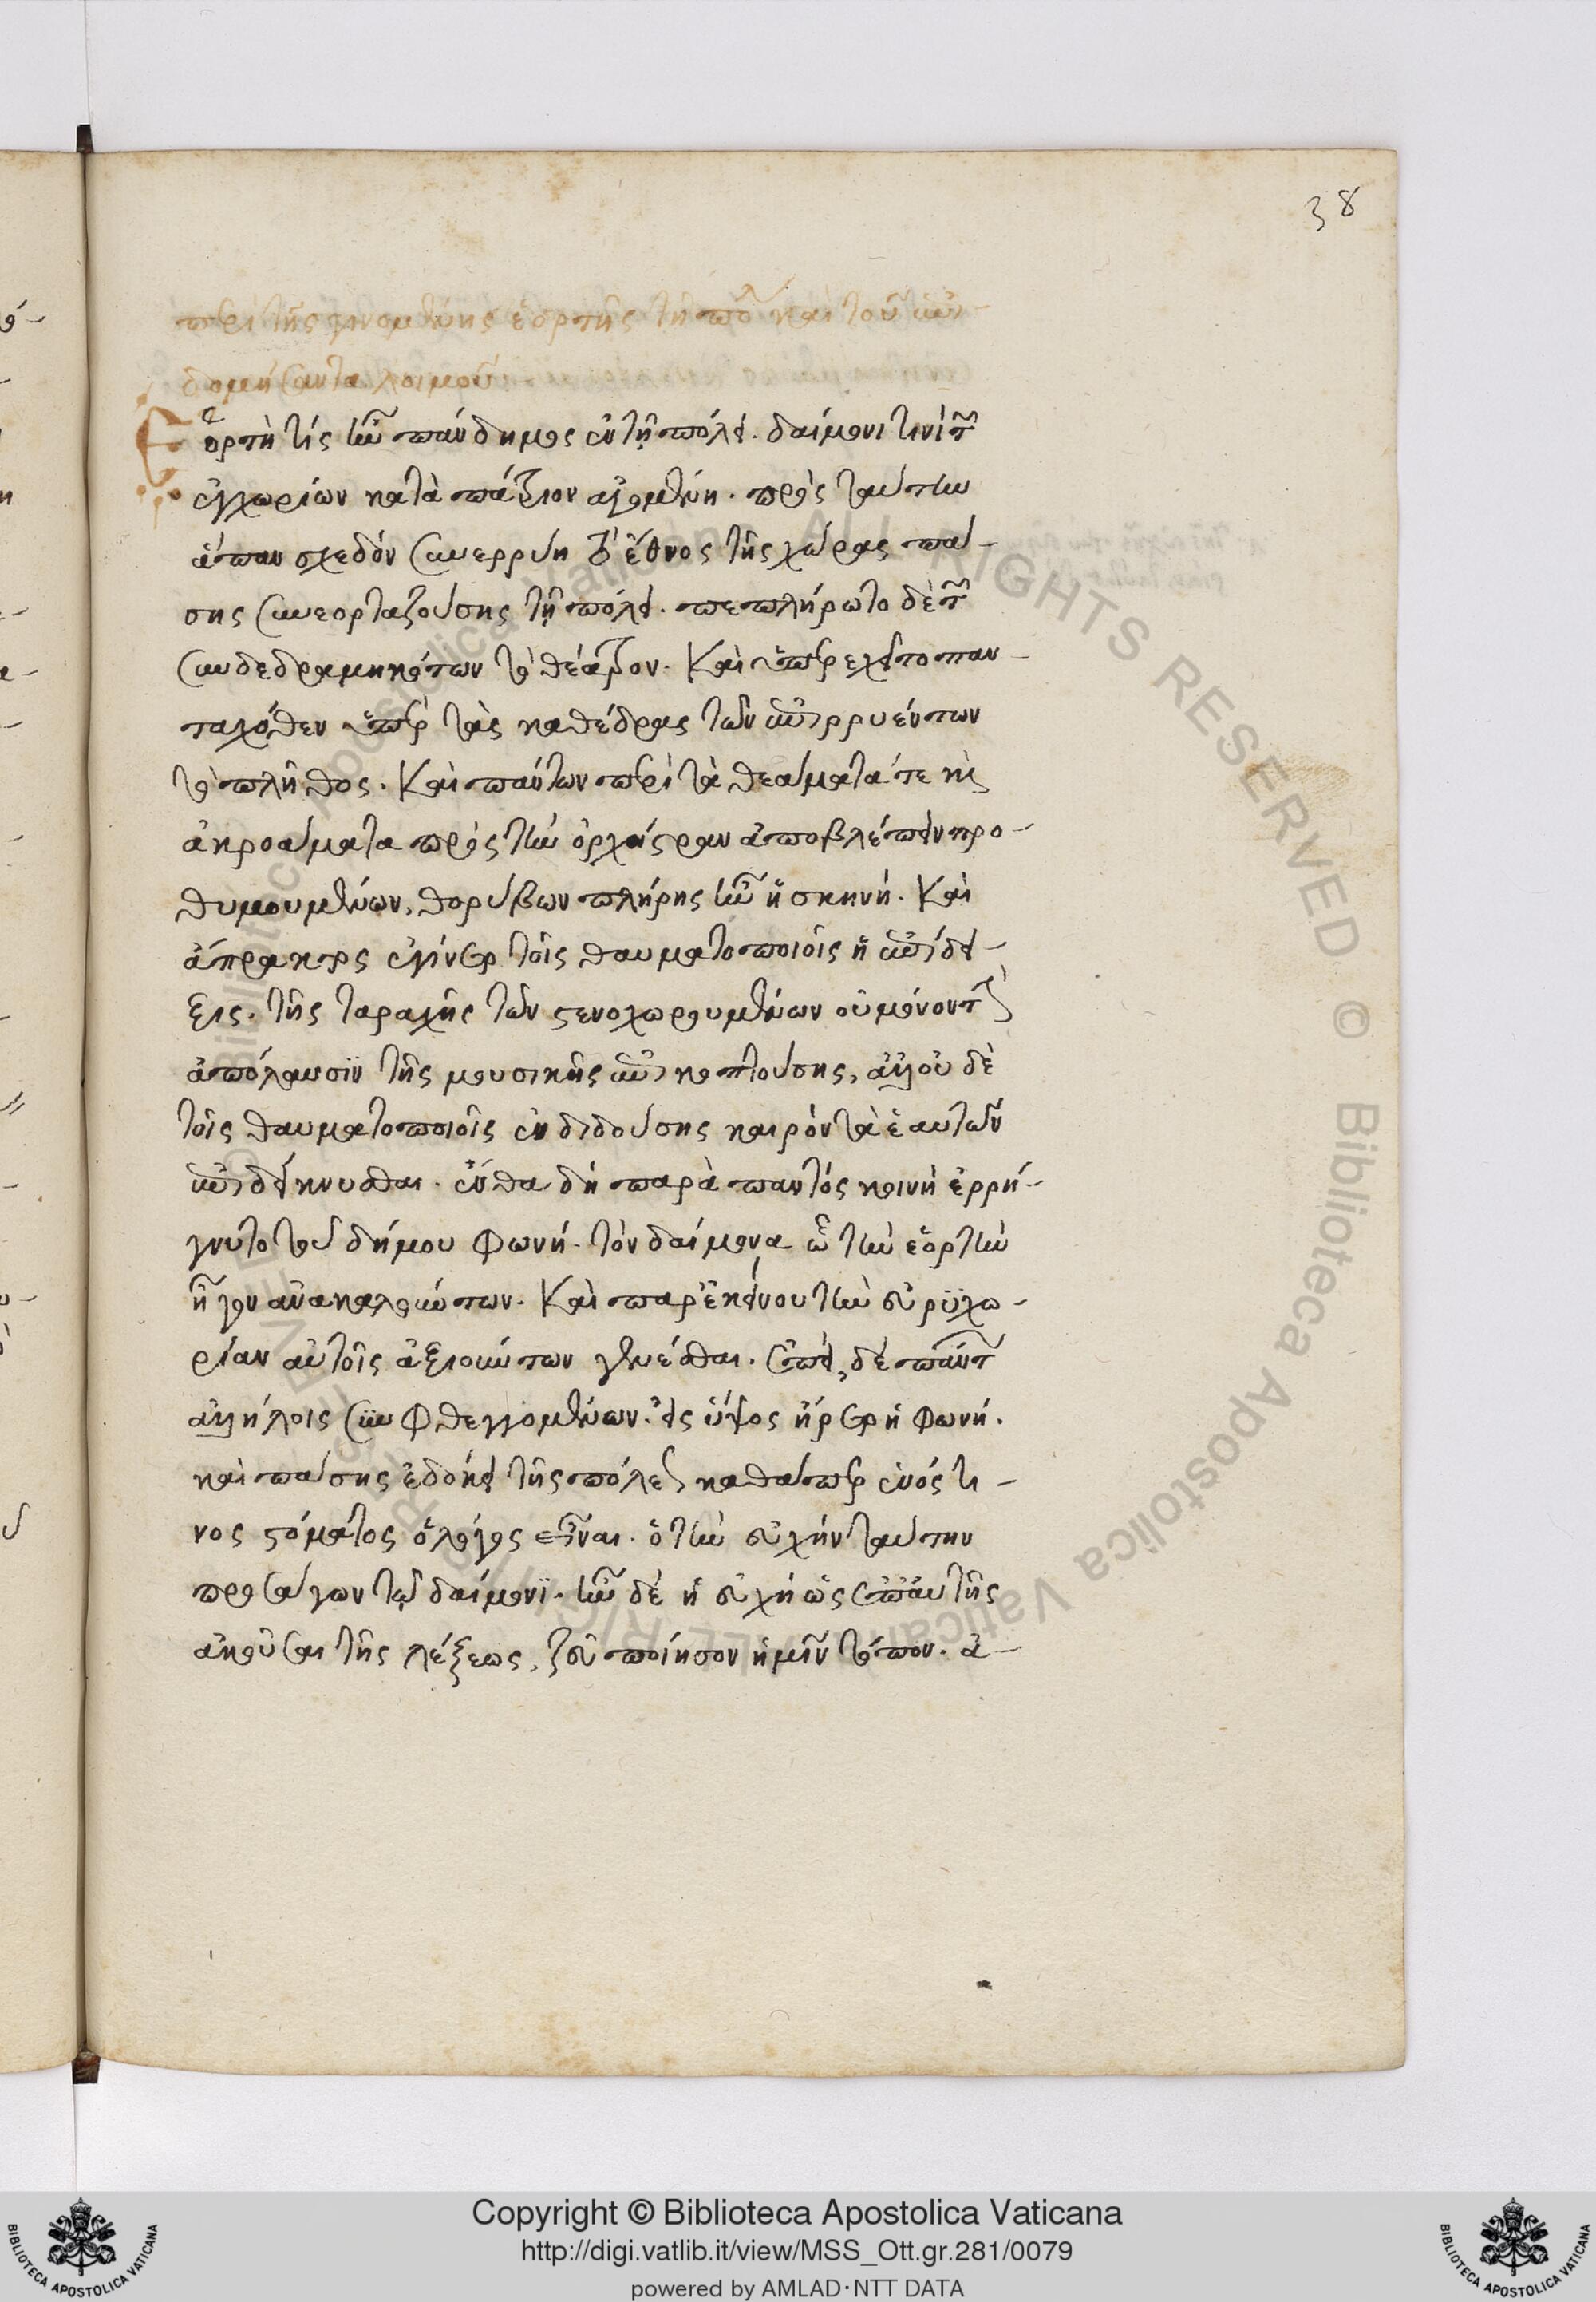 38
περὶ τῆς γινομένης ἑορτῆς τῇ πό καὶ τοῦ ἐπι-
δομήσαντα λοιμοῦ
Ἑορτή τις ἦν πάνδημος ἐν τῇ πόλει. δαίμονι τινὶ τῶν
ἐγχωρίων κατὰ πάτριον ἀγομένη. πρὸς ταύτην
ἅπαν σχεδὸν συνερρύη τὸ ἔθνος τῆς χώρας πά-
σης συνεορταζούσης τῇ πόλει. πεπλήρωτο δὲ τῶν
συνδεδραμηκότων τὸ θέατρον. Καὶ ὑπερεχεῖτο παν-
ταχόθεν ὑπὲρ τὰς καθέδρας τῶν ἐπιρρυέντων
τὸ πλῆθος. Καὶ πάντων περὶ τὰ θεάματά τε καὶ
ἀκροάματα πρὸς τὴν ὀρχήστραν ἀποβλέπειν προ-
θυμουμένων, θορύβων πλήρης ἦν ἡ σκηνή. Καὶ
ἄπρακτος ἐγίνετο τοῖς θαυματοποιοῖς ἡ ἐπίδει-
ξις. τῆς ταραχῆς τῶν στενοχωρουμένων οὐ μόνον τὴν
ἀπόλαυσιν τῆς μουσικῆς ἐπικοπτούσης, ἀλλ' οὐδὲ
τοῖς θαυματοποιοῖς ἐνδιδούσης καιρὸν τὰ ἑαυτῶν
ἐπιδείκνυσθαι. ἔνθα δὴ παρὰ παντὸς κοινὴ ἐρρή-
γνυτο τοῦ δήμου φωνή. τὸν δαίμονα ᾧ τὴν ἑορτὴν
ἦγον ἀνακαλούντων. Καὶ παρ' ἐκείνου τὴν εὐρυχω-
ρίαν αὐτοῖς ἀξιούντων γενέσθαι. ἐπεὶ δὲ πάντων
ἀλλήλοις συμφθεγγομένων. εἰς ὕψος ἤρετο ἡ φωνή.
καὶ πάσης ἐδόκει τῆς πόλεως καθάπερ ἑνός τι-
νος στόματος ὁ λόγος εἶναι. ὁ τὴν εὐχὴν ταύτην
προσάγων τῷ δαίμονι. ἦν δὲ ἡ εὐχὴ ὡς ἐπ' αὐτῆς
ἀκοῦσαι τῆς λέξεως, Ζεῦ ποίησον ἡμῖν τόπον. ἀ-
Copyright © Biblioteca Apostolica Vaticana
http://digi.vatlib.it/view/MSS_Ott.gr.281/0079
powered by AMLAD·NTT DATA